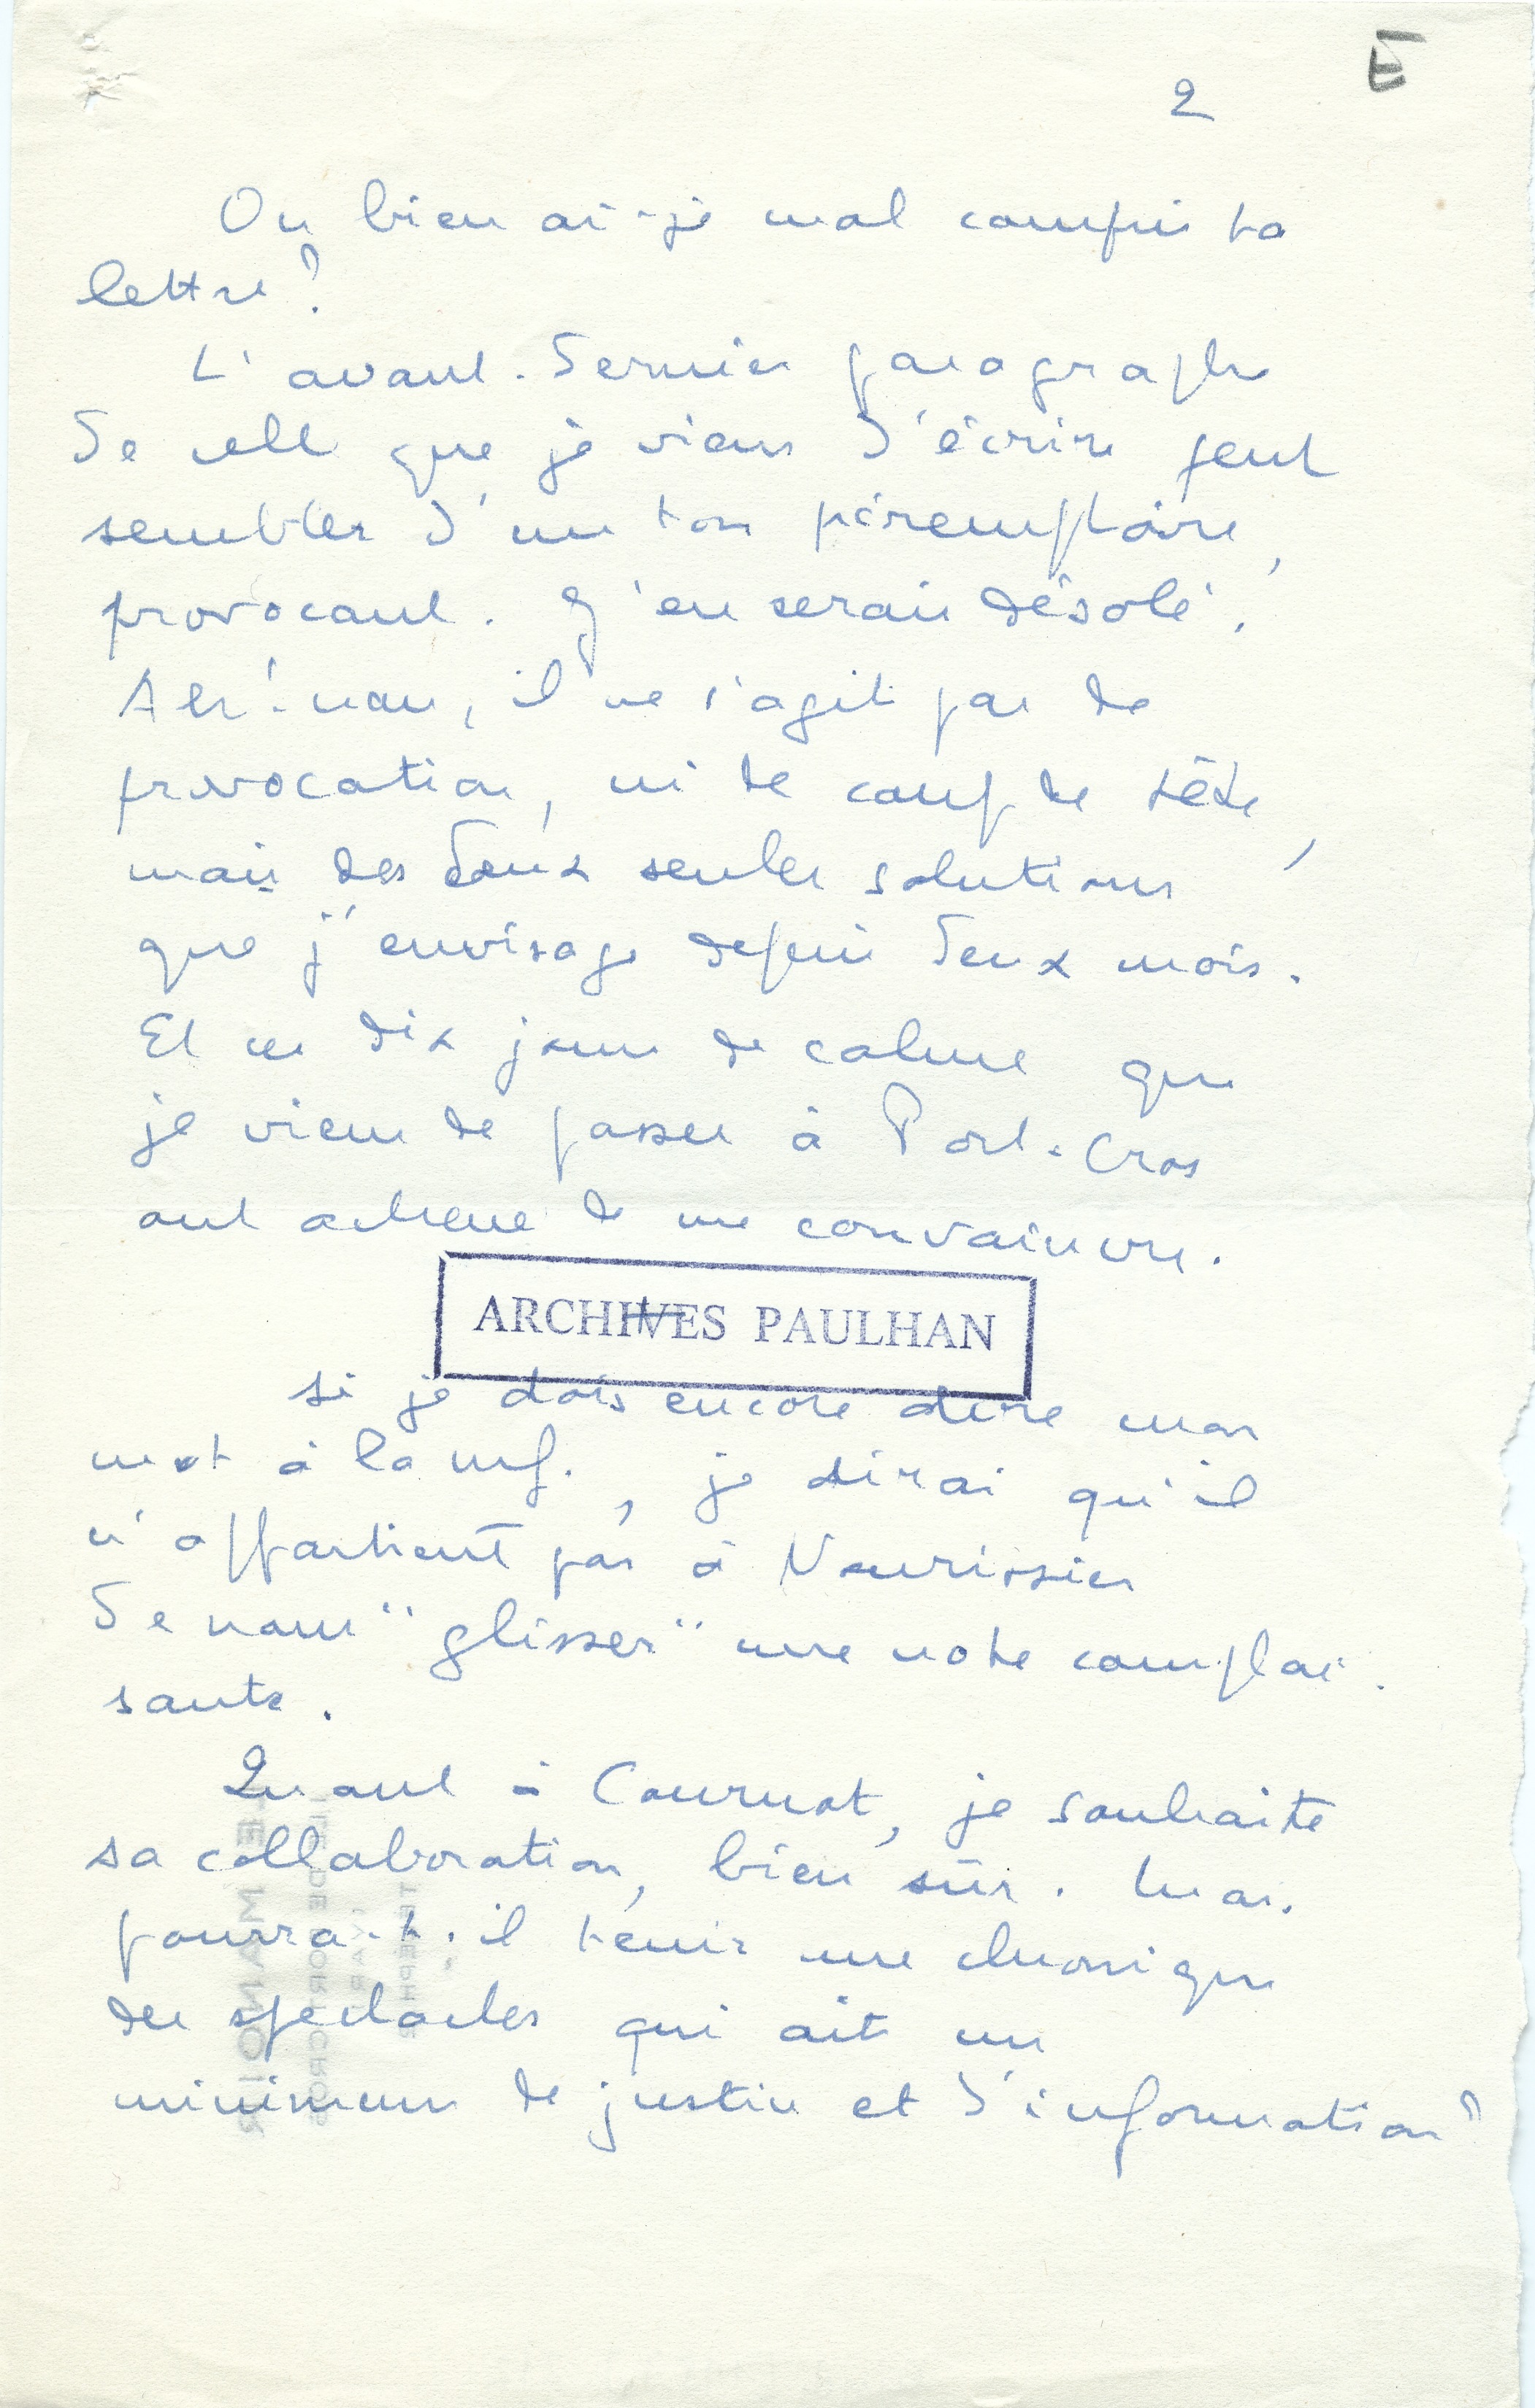 E
2
Ou bien ai-je mal compris ta
lettre?
L'avant-dernier paragraphe
de celle que je viens d'écrire peut
sembler d'un ton péremptoire,
provocant. J'en serais désolé.
il ne s'agit pas de
provocation, ni de coup de tête,
mais des deux seules solutions
que j'envisage depuis deux mois.
Et ces dix jours de calme que
je viens de passer à Port-Cros
ont achevé de me convaincre.
ARCHIVES PAULHAN
Si je dois encore dire mon
mot à la nrf., je dirai qu'il
n'appartient pas à Nourissier
de nous "glisser" une note complai-
sante.
Quant à Cournot, je souhaite
sa collaboration, bien sûr. Mais
pourra-t-il tenir une chronique
des spectacles qui ait un
minimum de justice et d'information?
LE MANOIR
ILE DE PORT-CROS